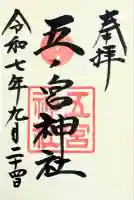 奉拝
五ノ宮神社
五宮神社
令和七年九月二十四日